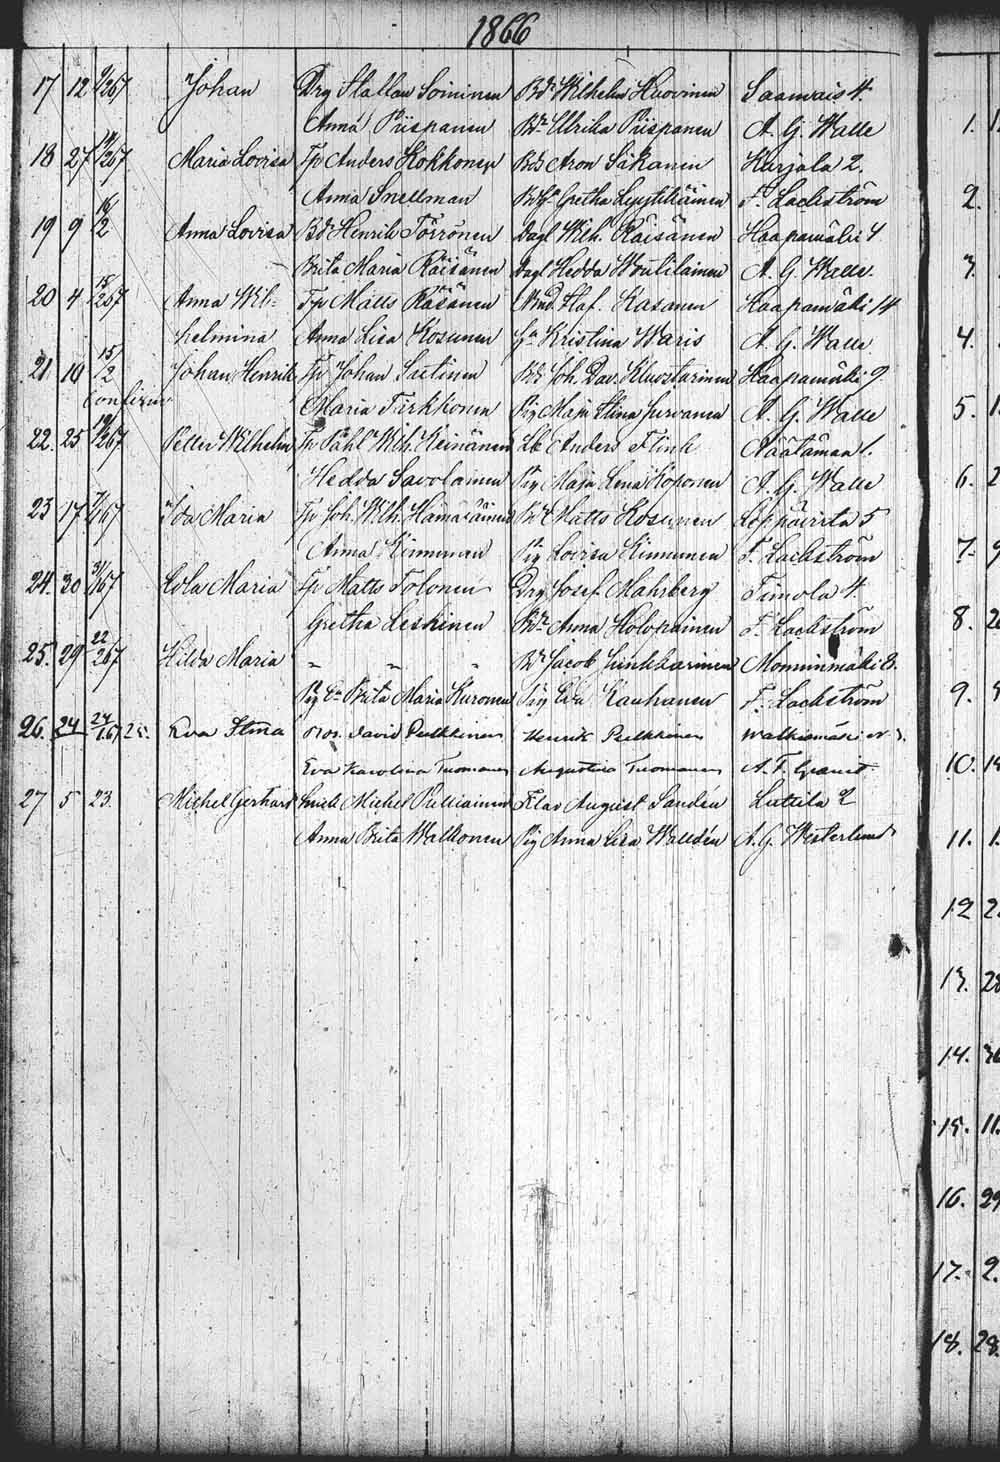 1866
17 12 9/2 67 Johan Drg Staffan Soininen Bd: Wilhelm Huovinen Saamais 4.
Anna Piispanen Bdr Ulrika Piispanen A. G. Walle
18 27 /2 67 Maria Lovisa Tp Anders Kokkonen Bds Aron Säkanen Karjala 2.
Anna Snellman Gretha Lyytikäinen F. Lackström
19 9 16/2 Anna Lovisa Bd: Henrik Törrönen Dagl Wilh. Räisänen Haapamäki 4
Brita Maria Räisänen Dagl Hedda Woutilainen A. G. Walle.
20 4 15/2 67 Anna Wil= Tp Matts Räsänen Staf. Kasanen Haapamäki 14
helmina Anna Lisa Kosunen Kristina Waris A. G. Walle
21 10 15/2 Johan Henrik Tp Johan Sutinen Bds Joh. Dav. Kluostarinen Haapamäki 9
Maria Turkkonen Pig Maja Stina Jurvanen A. G. Walle
22. 25 19/2 67 Petter Wilhelm Tp Påhl Wilh. Keinänen Anders Flink Räätämaa 1.
Hedda Savolainen Pig Maja Lena Koponen A. G. Walle
23 17 67 Ida Maria Tp Joh. Wilh. Hämäläinen Bd: Matts Kosunen Leppävirta 5
Anna Kinnunen Pig Lovisa Kinnunen F. Lackström
24. 30 31/1 67 Eva Maria Tp Matts Tolonen Drg Josef Mahrberg Timola 4.
Gretha Leskinen Bdr Anna Holopainen F. Lackström
25. 29 22/2 67 Hilda Maria " " " Bd: Jacob Junkkarinen Mominmäki 8.
Pig Ea Brita Maria Kuronen Pig Eva Kauhanen F. Lackström
26. 24 24/1.67 Eva Stina David Pulkkinen Henrik Pulkkinen
Eva Karolina Tuomanen Augustina Tuomanen A. F. Granit.
27 5 23. Michel Gerhard Michel Pulliainen Klav August Sandén Luttila 2
Anna Brita Walkonen Pig Anna Lisa Walldén A. G. Westerlund
1.
2.
3.
4.
5.
6. 2
7. 9
8. 2
9.
10. 19
11. 1.
12 2.
13. 28
14.
15. 11.
16. 29
17. 2.
18. 28.